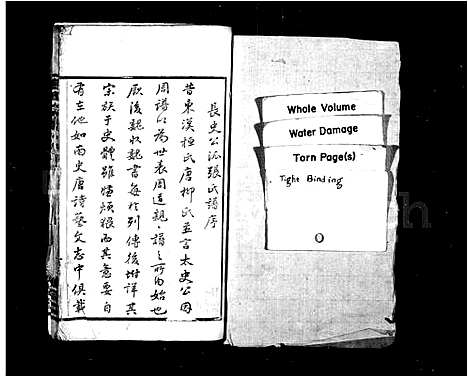 長史公派張氏譜序
昔東漢桓氏唐柳氏並言太史公因
周譜以為世表周道親親譜之所由始也
厥後魏收魏書每於列傳後附詳其
宗族于史體雖嫌煩猥而其意要自
有在他如南史唐詩藝文志中俱載
Whole Volume
Water Damage
Torn Page(s)
Tight Binding